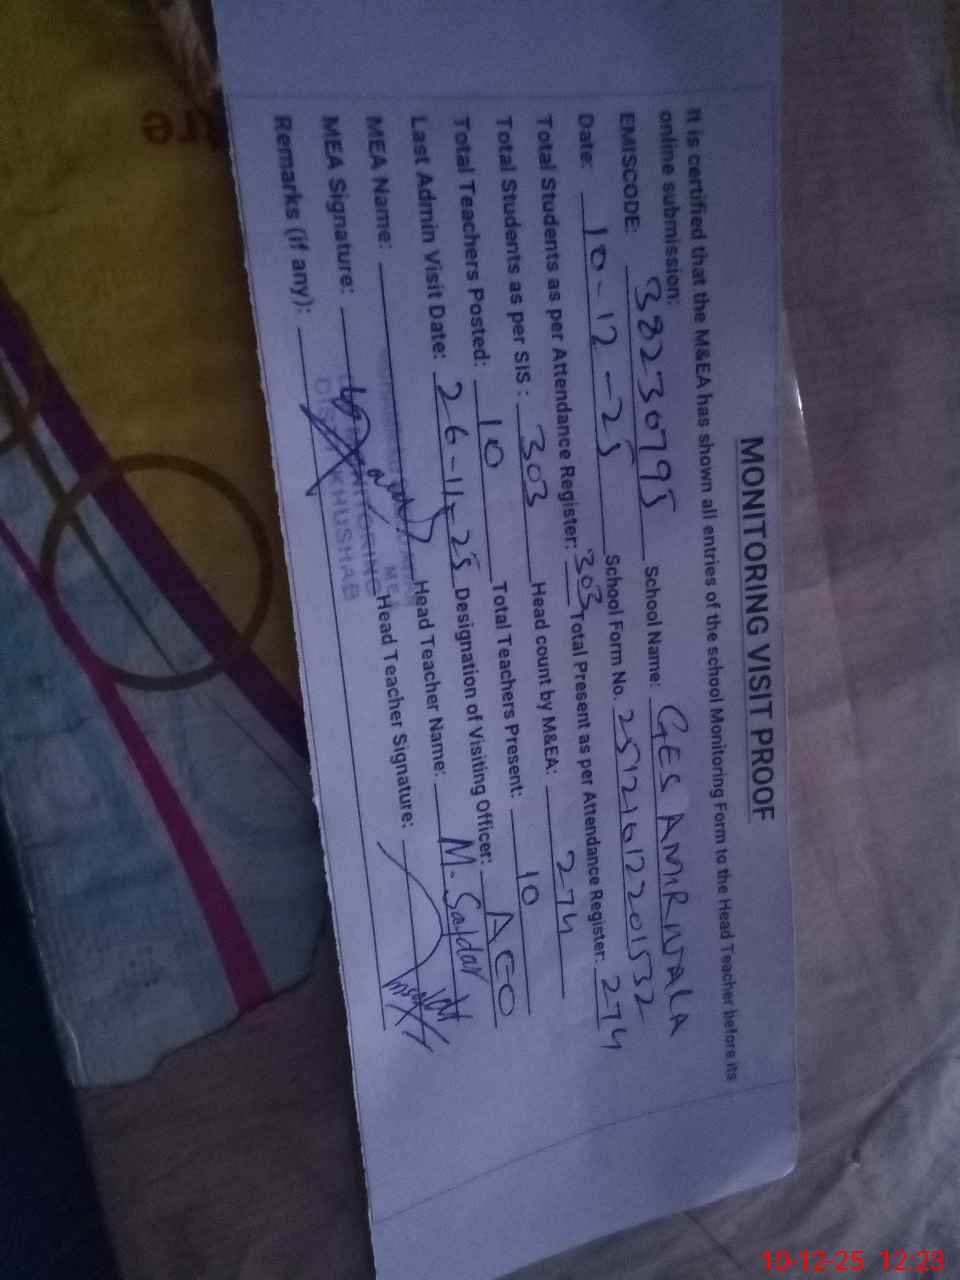 MONITORING VISIT PROOF
It is certified that the M&EA has shown all entries of the school Monitoring Form to the Head Teacher before its
online submission:
EMISCODE: 38230795 School Name: GES AMIRWALA
Date: 10-12-25 School Form No. 25121612201532
Total Students as per Attendance Register: 303 Total Present as per Attendance Register: 274
Total Students as per SIS : 303 Head count by M&EA: 274
Total Teachers Posted: 10 Total Teachers Present: 10
Last Admin Visit Date: 26-11-25 Designation of Visiting Officer: AEO
MEA Name: Head Teacher Name: M. Safdar
MEA Signature: Head Teacher Signature:
Remarks (if any):
MONITORING
DISTT KHUSHAB
are
10-12-25 12:23